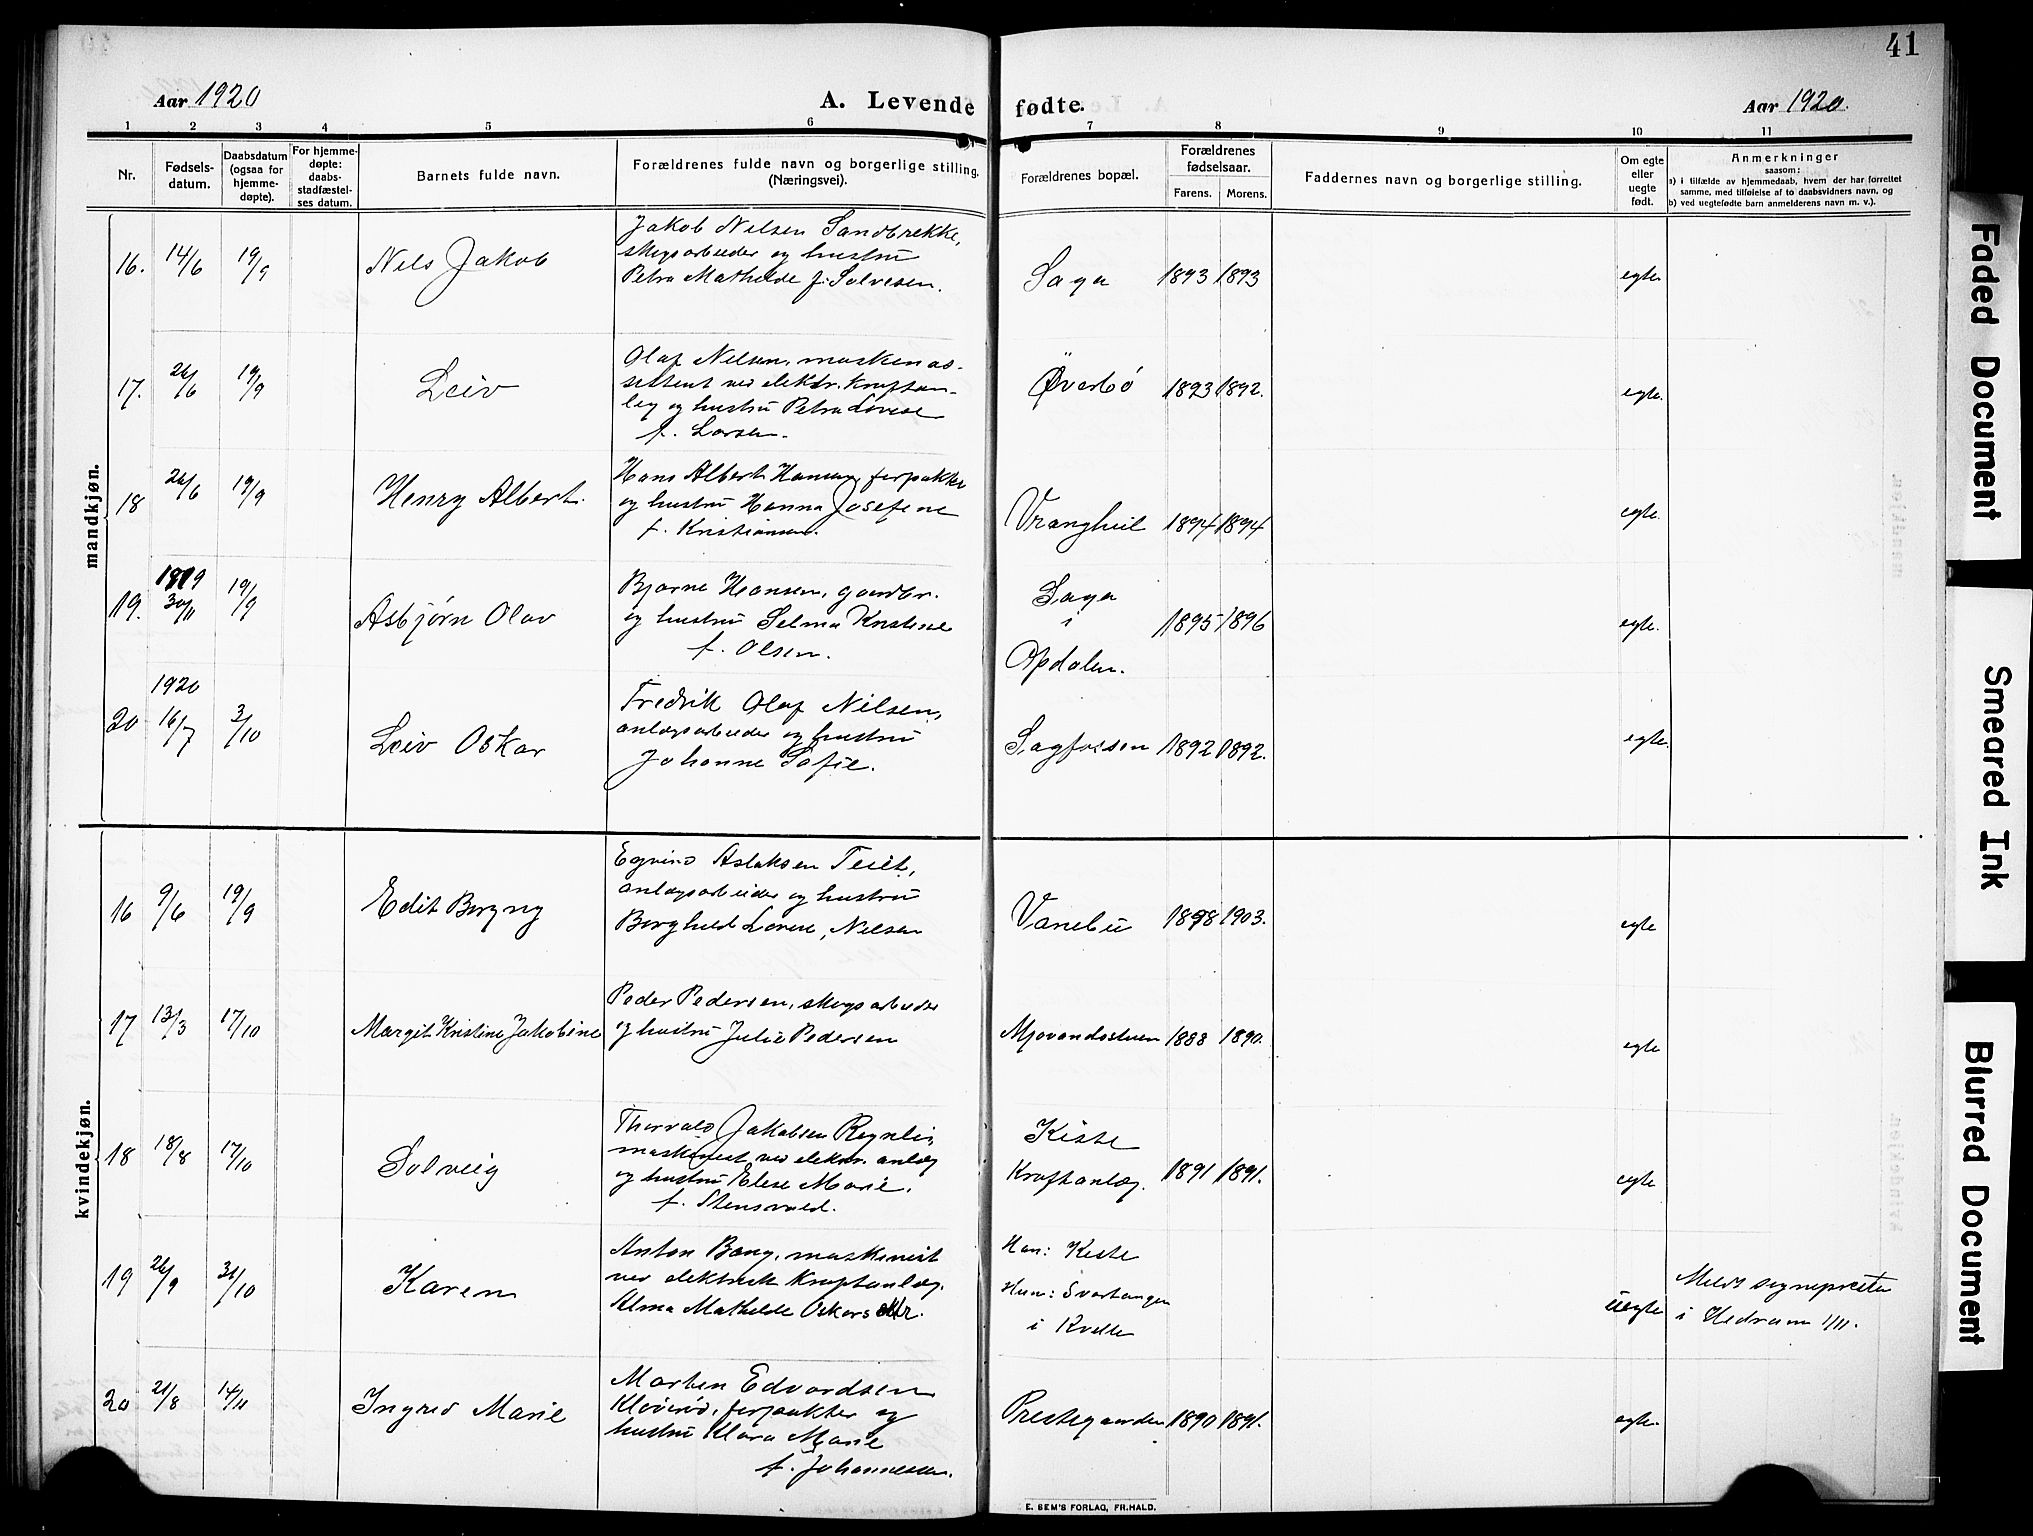 41
Aar 1920
A. Levende fødte.
Aar 1920.
1 2 3 4 5 6 7 8 9 10 11
Nr.
Fødsels-
datum.
Daabsdatum
(ogsaa for
hjemme-
døpte).
For hjemme-
døpte:
daabs-
stadfæstel-
ses datum.
Barnets fulde navn.
Forældrenes fulde navn og borgerlige stilling.
(Næringsvei).
Forældrenes bopæl.
Forældrenes
fødselsaar.
Farens. Morens.
Faddernes navn og borgerlige stilling.
Om egte
eller
uegte
født.
Anmerkninger
saasom:
a) i tilfælde av hjemmedaab, hvem der har forrettet
samme, med tilføielse af to daabsvidners navn, og
b) ved uegtefødte barn anmelderens navn m. v.).
mandkjøn.
16. 14/6 19/9 Nils Jakob
Jakob Nilsen Sandbrekke,
skogsarbeider og hustru
Petra Mathilde f. Solvesen.
Saga 1893 1893 egte.
17. 26/6 19/9 Leiv
Olaf Nilsen, maskinas-
sistent ved elektr. kraftan-
læg og hustru Petra Lovise
f. Larsen.
Øverbö 1893 1892. egte.
18 26/6 19/9 Henry Albert.
Hans Albert Hansen, forpakter
og hustru Hanna Josefine
f. Kristiansen.
Vranghil 1894 1894 egte.
19. 1919 30/11 19/9 Asbjørn Olav
Bjarne Hansen, gaardbr.
og hustru Selma Kristine
f. Olsen.
Saga
i
Opdalen.
1895 1896 egte.
20 1920 16/7 3/10 Leiv Oskar
Fredrik Olaf Nilsen,
anlægsarbeider og hustru
Johanne Sofie.
Sagfossen 1892 1892. egte.
kvindekjøn.
16 9/6 19/9 Edit Borgny
Eyvind Aslaksen Teiet,
anlægsarbeider og hustru
Borghild Lovise, Nilsen
Vanebu 1898 1903. egte
17 13/3 17/10 Margit Kristine Jakobine
Peder Pedersen, skogsarbeider
og hustru Julie Pedersen
Mjovandsstuen 1888 1890. egte
18 18/8 17/10 Solveig
Thorvald Jakobsen
maskinist ved elektr. anlæg
og hustru Elise Marie,
f. Stensvald.
Kiste
Kraftanlæg. 1891 1891. egte
19 26/9 31/10 Karen
Anton Bang, maskinist
ved elektrisk kraftanlæg.
Alma Mathilde Oskarsdtr.
Han: Kiste
Hun: Svartangen
i Kvelle
uegte
Meldt sognepresten
i Hedrum 1/11.
20 21/8 14/11 Ingrid Marie
Marten Edvardsen
forpakter og
hustru Klara Marie
f. Johannessen.
Prestegaarden 1890 1891. egte.
E. SEM'S FORLAG, FR.HALD.
Faded Document
Smeared Ink
Blurred Document